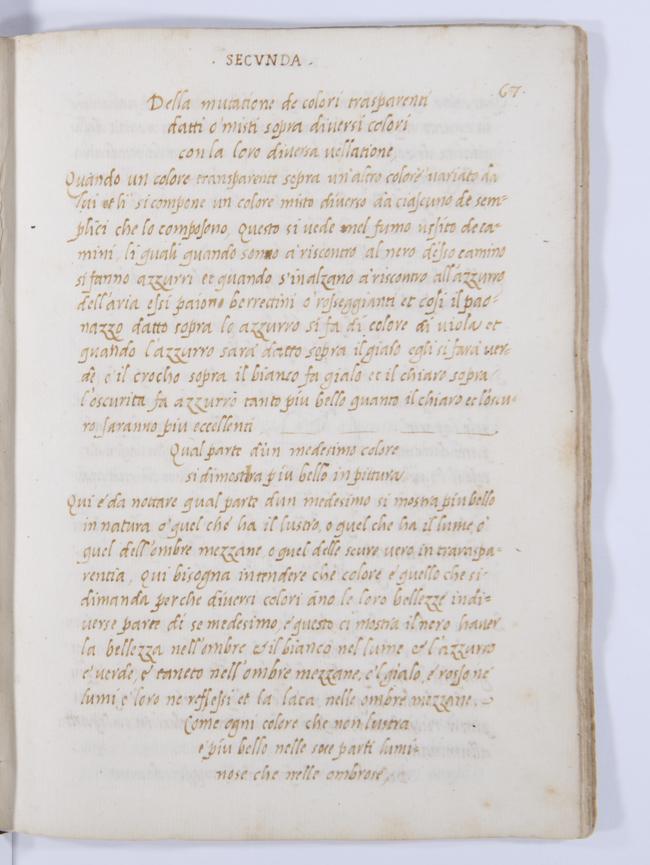 . SECVNDA .
67.
Della mutatione de colori trasparenti
datti o' misti sopra diuersi colori
con la loro diuersa uellatione,
Quando un colore transparente sopra un'altro colore uariato da
lui et li si compone un colore misto diuerso da ciascuno de sem-
plici che lo compongono, questo si uede nel fumo ussito de ca-
mini, li quali quando sonno a' riscontro al nero d'esso camino
si fanno azzurri et quando s'inalzano a' riscontro all'azzurro
dell'aria essi paiono berrettini o' rosseggianti et cosi il pao-
nazzo datto sopra lo azzurro si fa di colore di uiola et
quando l'azzurro sara' datto sopra il gialo egli si fara uer-
de, e il crocho sopra il bianco fa gialo et il chiaro sopra
l'oscurita fa azzurro tanto piu bello quanto il chiaro et l'oscu-
ro saranno piu eccellenti
Qual parte d'un medesimo colore
si dimostra piu bello in pittura
Qui e' da nottare qual parte d'un medesimo si mostra piu bello
in natura o' quel che ha il lustro, o quel che ha il lume, o'
quel dell'ombre mezzane, o quel delle scure uero, in trarasspa-
rentia, Qui bisogna intendere che colore e' quello che si
dimanda perche diuersi colori ano le loro bellezze in di-
uerse parte di se medesimo, e' questo ci mostra il nero hauer
la bellezza nell'ombre e il bianco nel lume e l'azzurro
e' uerde, e' taneto nell'ombre mezzane, e'l gialo, e' rosso ne
lumi, e' loro ne reflessi et la laca nelle ombre mezzane.
Come ogni colore che non lustra
e' piu bello nelle soe parti lumi-
nose che nelle ombrose,